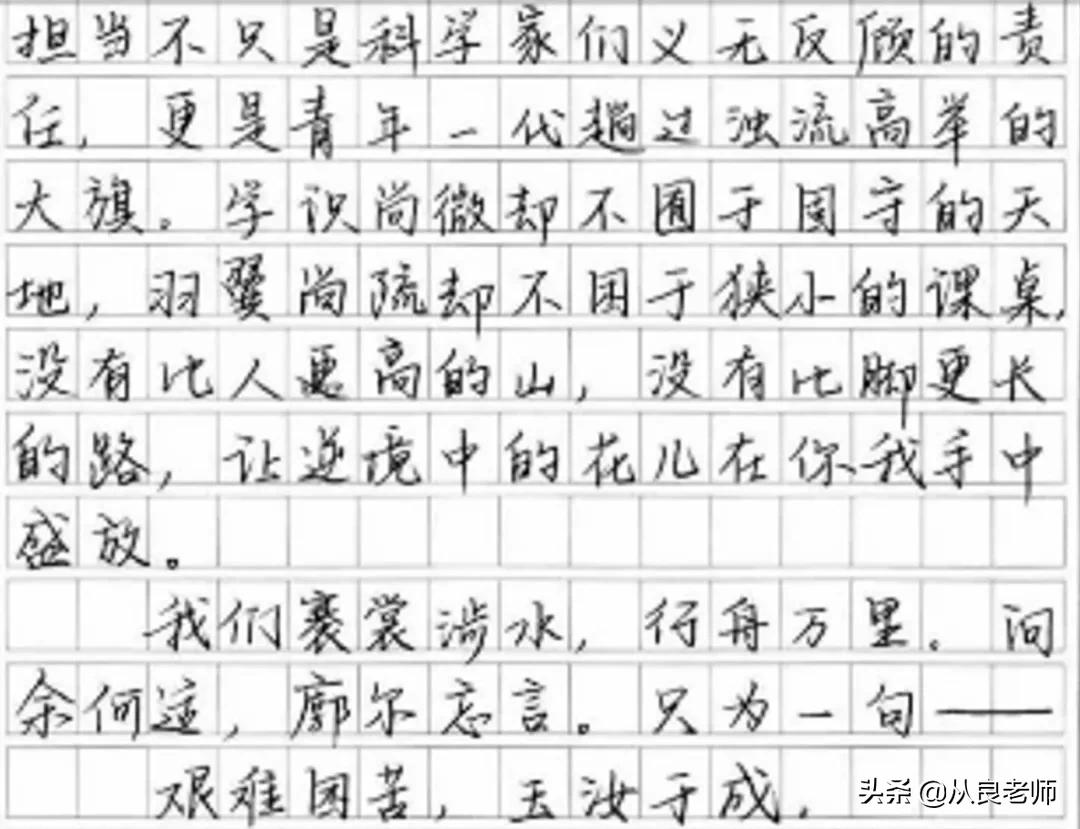 担当不只是科学家们义无反顾的责
任，更是青年一代趟过浊流高举的
大旗。学识尚微却不囿于固守的天
地，羽翼尚疏却不困于狭小的课桌，
没有比人更高的山，没有比脚更长
的路，让逆境中的花儿在你我手中
盛放。
我们褰裳涉水，行舟万里。问
余何适，廓尔忘言。只为一句——
艰难困苦，玉汝于成．
头条 @从良老师